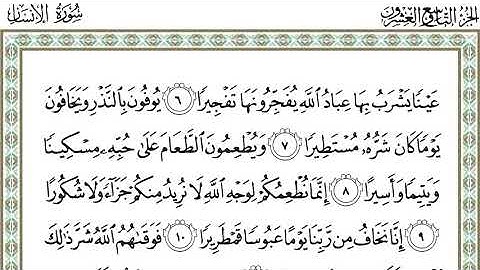 الجزء التاسع والعشرون
سورة الإنسان
عَيْنًا يَشْرَبُ بِهَا عِبَادُ ٱللَّهِ يُفَجِّرُونَهَا تَفْجِيرًا ٦ يُوفُونَ بِٱلنَّذْرِ وَيَخَافُونَ
يَوْمًا كَانَ شَرُّهُۥ مُسْتَطِيرًا ٧ وَيُطْعِمُونَ ٱلطَّعَامَ عَلَىٰ حُبِّهِۦ مِسْكِينًا
وَيَتِيمًا وَأَسِيرًا ٨ إِنَّمَا نُطْعِمُكُمْ لِوَجْهِ ٱللَّهِ لَا نُرِيدُ مِنكُمْ جَزَآءً وَلَا شُكُورًا
٩ إِنَّا نَخَافُ مِن رَّبِّنَا يَوْمًا عَبُوسًا قَمْطَرِيرًا ١٠ فَوَقَىٰهُمُ ٱللَّهُ شَرَّ ذَٰلِكَ